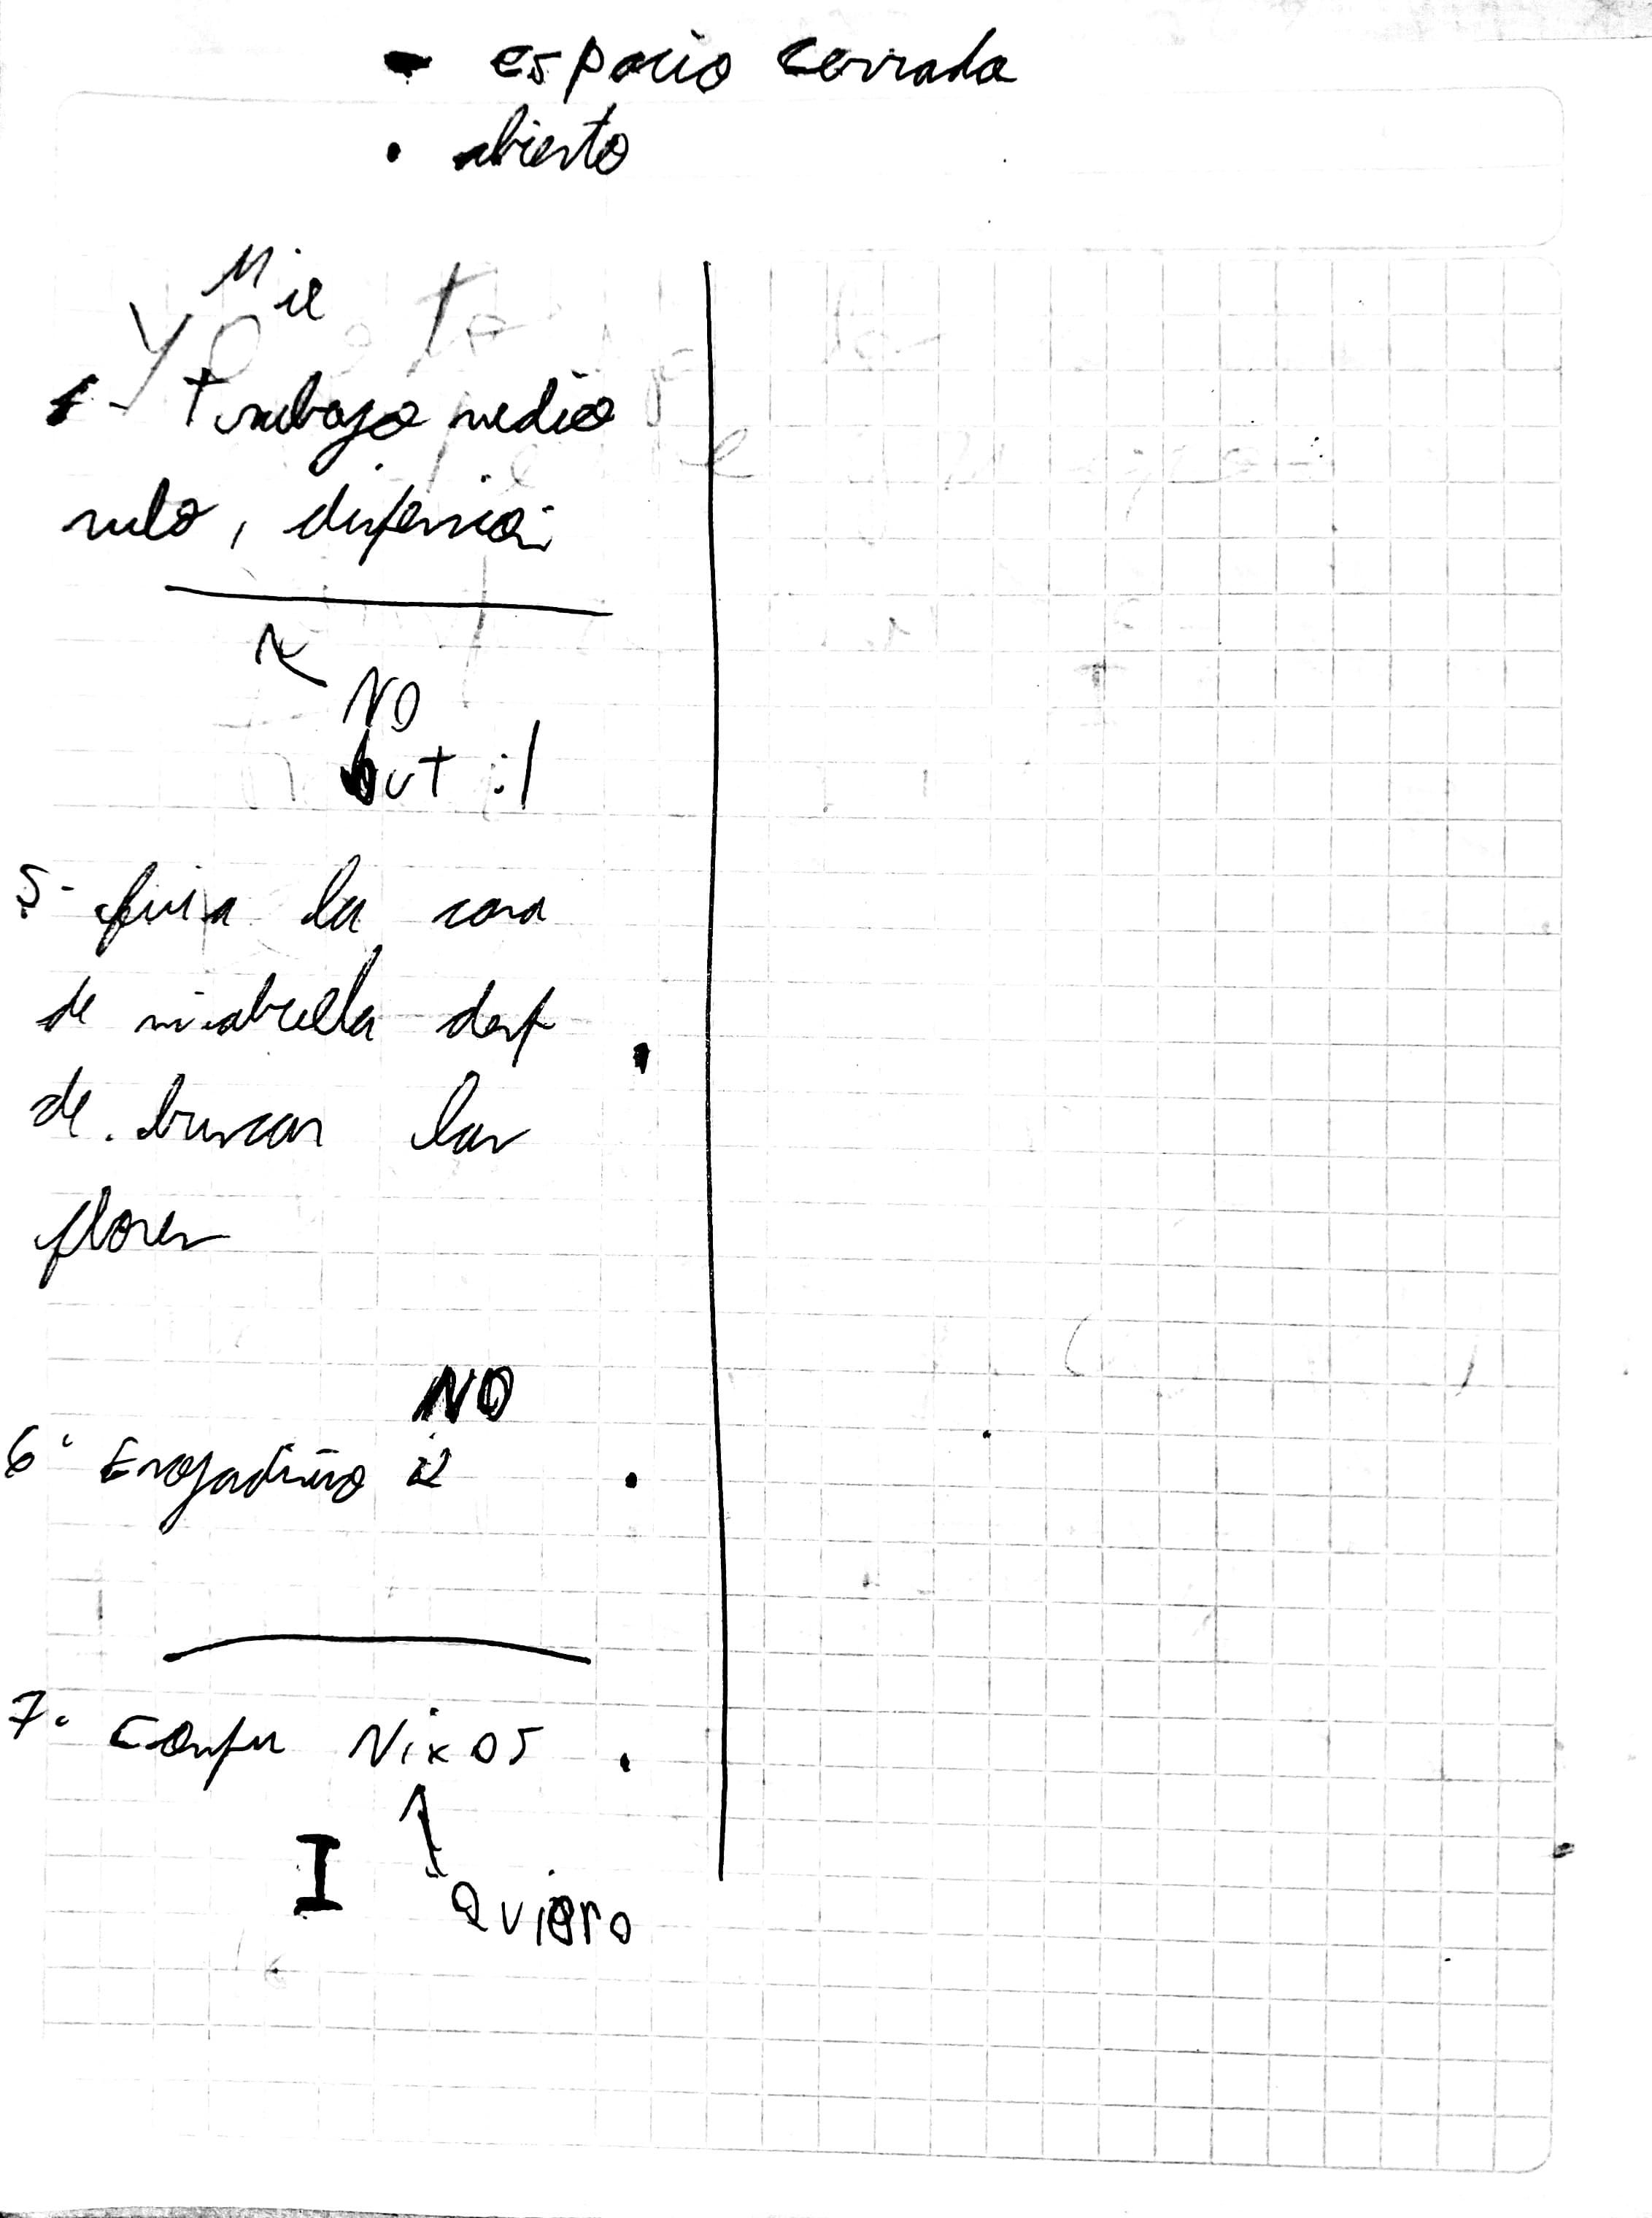 - espacio cerrado
• abierto
Mie
1- Trabajo medio
nulo,
NO
but :/
5- fui a la casa
de mi abuella desp
de buscar las
flores
NO
6- Enojadisimo
7- Confu Nikos
I
Quiero